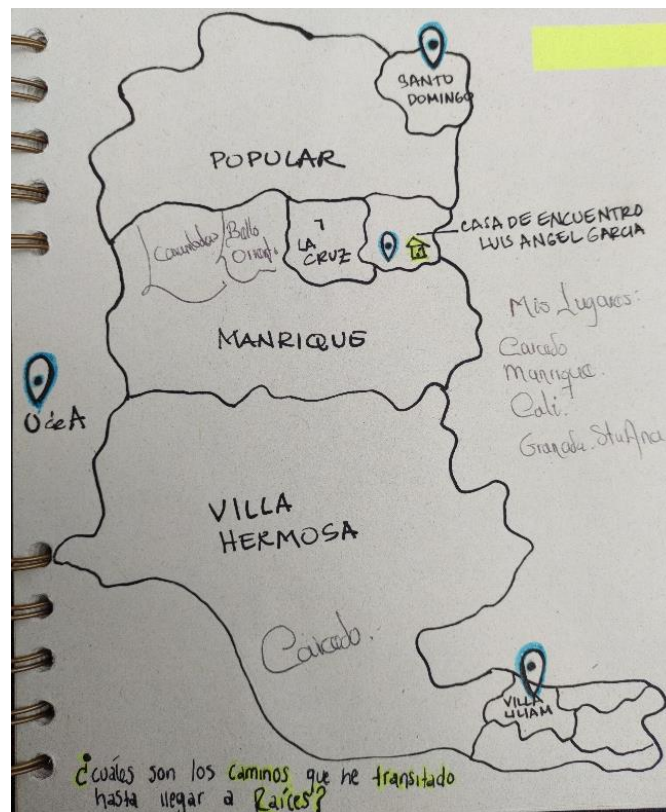 SANTO
DOMINGO
POPULAR
Bello
Orient
LA
CRUZ
CASA DE ENCUENTRO
LUIS ANGEL GARCIA
MANRIQUE
Mis Lugares:
Caicedo
Manrique.
Cali.
Granada.
UdeA
VILLA
HERMOSA
Caicedo.
VILLA
LILIAM
¿cuáles son los caminos que he transitado
hasta llegar a Raíces?